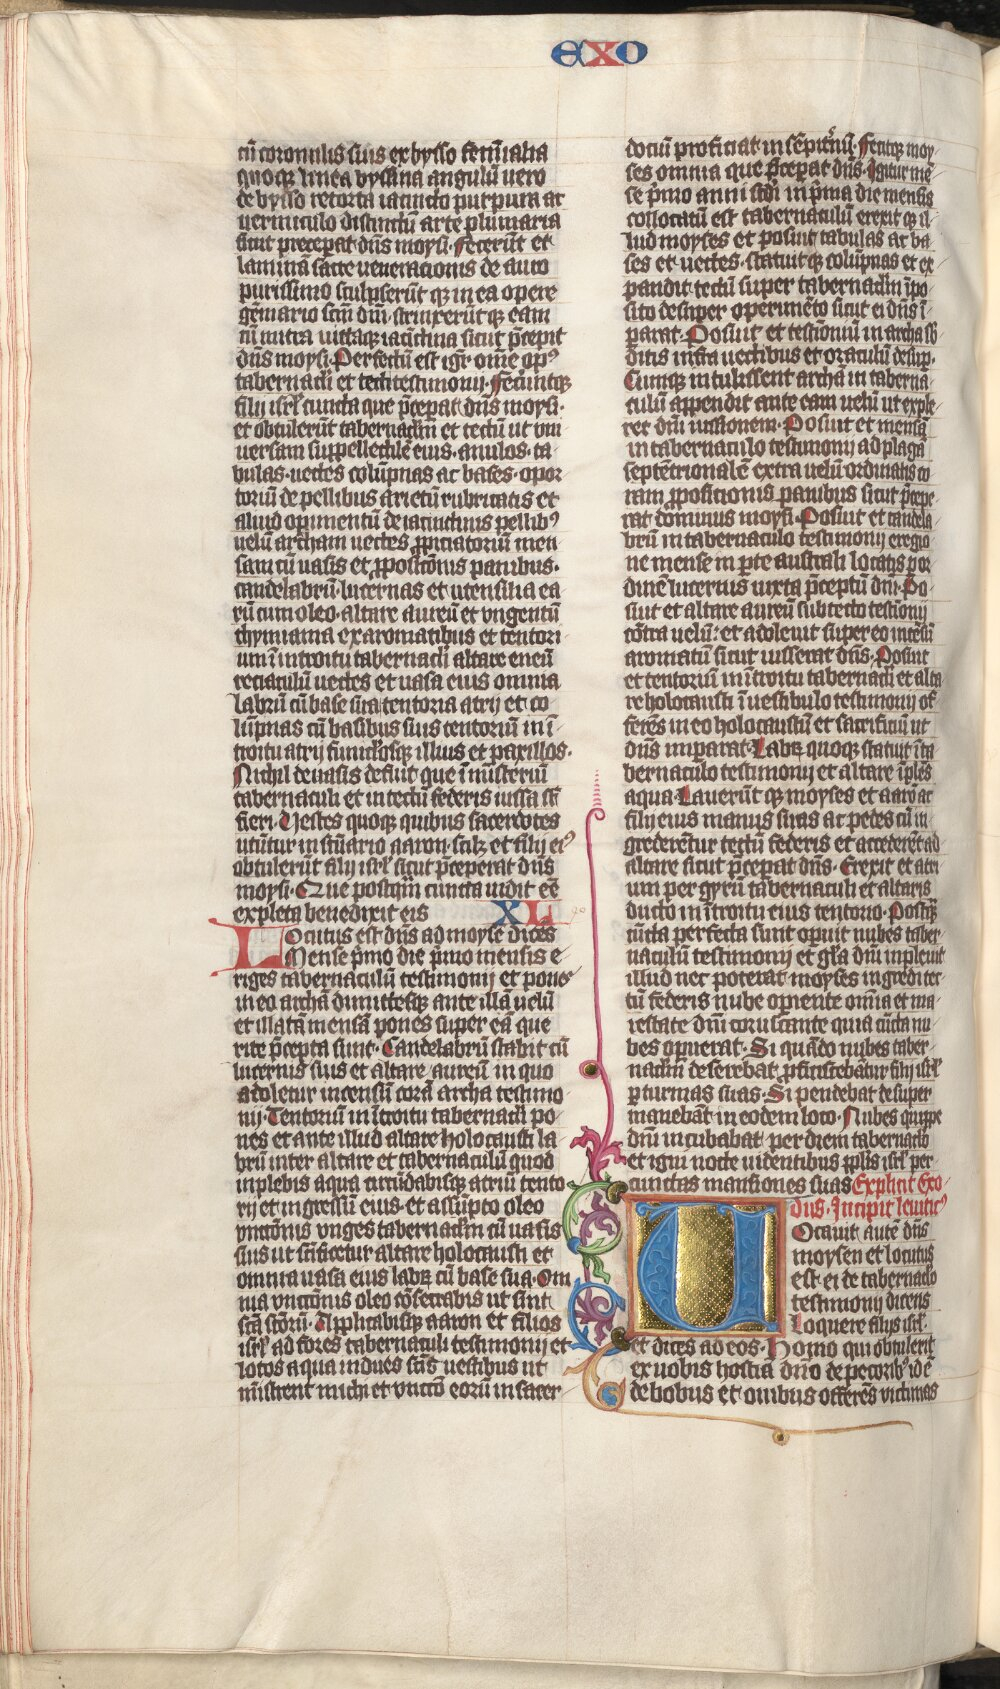 EXO
cū coronulis suis ex bysso feminalia
quoqꝫ linea byssina cingulū uero
de bysso retorta iacincto purpura ac
uermiculo distinctū arte plumaria
sicut preceperat dn̄s moysi. Fecerūt et
laminā sacre ueneracionis de auro
purissimo sculpserūt qꝫ in ea opere
gēmario scm̄ dn̄i. strinxerūt qꝫ eam
cū mitra uittaqꝫ iacinctina sicut p̄cepit
dn̄s moysi. Perfectū est igr̄ om̄e opꝰ
tabernacl̄i et tecti testimonij. Feceruntqꝫ
filij isrl̄ cuncta que p̄ceperat dn̄s moysi.
et obtulerūt tabernaclm̄ et tectū ut uni
uersam suppellectilē eius. anulos. ta-
bulas. uectes colūpnas ac bases. oper
toriū de pellibus arietū rubricatis et
aliud opimentū de iacinctinis pellibꝰ
uelū archam uectes ꝓpiciatoriū men
sam cū uasis et ꝓposicōnis panibus.
candelabrū. lucernas et utensilia ea
rū cum oleo. altare aureū et ungentū
thymiama ex aromatibus et tentori
um ī introitu tabernacl̄i altare eneū
reciaculū uectes et uasa eius omnia
labrū cū base sua tentoria atrij et co
lūpnas cū basibus suis tentoriū in ī-
troitu atrij funiclosqꝫ illius et paxillos.
Nichil de uasis defuit que ī misteriū
tabernaculi et in tectū federis iussa sūt
fieri. Uestes quoqꝫ quibus sacerdotes
utūtur in sc̄uario aaron. scilꝫ et filij eiꝰ
obtulerūt filij isrl̄ sicut p̄ceperat dn̄s
moysi. Que postqm̄ cuncta uidit eē
expleta benedixit eis XL
Locutus est dn̄s ad moysē dicēs
Mense p̄mo die p̄mo mensis e-
riges tabernaculū testimonij et pones
in eo archā dimittesqꝫ ante illā uelū
et illatā mensā pones super eā que
rite p̄cepta sunt. Candelabrū stabit cū
lucernis suis et altare aureū in quo
adoletur incensū corā archa testimo
nij. Tentoriū in ītroitu tabernacl̄i po-
nes et ante illud altare holocausti la-
brū inter altare et tabernaculū quod
inplebis aqua circūdabisqꝫ atriū tento-
rijs et ingressū eius. et assūpto oleo
unctōnis unges tabernaclm̄ cū uasis
suis ut sc̄ificetur altare holocausti et
omnia uasa eius labꝝ cū base sua. Om
nia unctōnis oleo cōsecrabis ut sint
scā scōrū. Applicabisqꝫ aaron et filios
isrl̄ ad fores tabernaculi testimonij et
lotos aqua indues scīs uestibus ut
mīstrent michi et unctō eorū in sacer
dociū proficiat in sēpit̄nū. Fecitqꝫ moy-
ses omnia que p̄ceperat dn̄s. Igitur mē
se p̄mo anni scd̄i in p̄ma die mensis
collocatū est tabernaculū erexit qꝫ il-
lud moyses et posuit tabulas ac ba
ses et uectes. statuit qꝫ colūpnas et ex
pandit tectū super tabernaclm̄ īpo-
sito desuper operimēto sicut ei dn̄s ī-
parat. Posuit et testiōniū in archa sb̄
ditis infra uectibus et oraculū desuꝑ.
Cumqꝫ intulissent archā in taberna-
culū appendit ante eam uelū ut exple-
ret dn̄i iussionem. Posuit et mensā
in tabernaculo testimonij ad plagā
septētrionalē extra uelū ordinatis co
ram ꝓposicionis panibus sicut p̄cepe-
rat dominus moysi. Posuit et candela-
brū in tabernaculo testimonij e regio
ne mense in p̄te australi locatis ꝑ or
dinē lucernis iuxta p̄ceptū dn̄i. Po-
suit et altare aureū sub tecto testiōnij
cōtra uelū: et adoleuit super eo incēsū
aromatū sicut iusserat dn̄s. Posuit
et tentoriū in ītroitu tabernacl̄i et alta
re holocausti ī uestibulo testimonij of-
ferēs in eo holocaustū et sacrificiū ut
dn̄s imparat. Labꝝ quoqꝫ statuit ī ta
bernaculo testimonij et altare īplēs
aqua. Lauerūt qꝫ moyses et aarō ac
filij eius manus suas ac pedes cū in-
grederētur tectū federis et accederēt ad
altare sicut p̄ceperat dn̄s. Erexit et atri
um per gyrū tabernaculi et altaris
ducto in ītroitu eius tentorio. Postqꝫ
cūcta perfecta sunt opuit nubes taber-
naculū testimonij et gl̄a dn̄i inpleuit
illud nec poterat moyses ingredi tec
tū federis nube opriente omīa et ma-
iestate dn̄i coruscante quia cūcta nu-
bes opuerat. Si quādo nubes taber-
naclm̄ deserebat ꝓficiscebātur filij isrl̄
ꝑ turmas suas. Si pendebat desuper
manebāt in eodem loco. Nubes quippe
dn̄i incubabat per diem tabernaclo
et igni nocte uidentibus ppl̄is isrl̄ per
cunctas mansiones suas Explicit Exo-
dus. Incipit leuiticꝰ
Uocauit autē dn̄s
moysen et locutus
est ei de tabernaclo
testimonij dicens
Loquere filijs isrl̄.
et dices ad eos. Homo qui obtulerit
ex uobis hostiā dn̄o de pecoribꝰ id ē
de bobus et ouibus offerēs uictimas